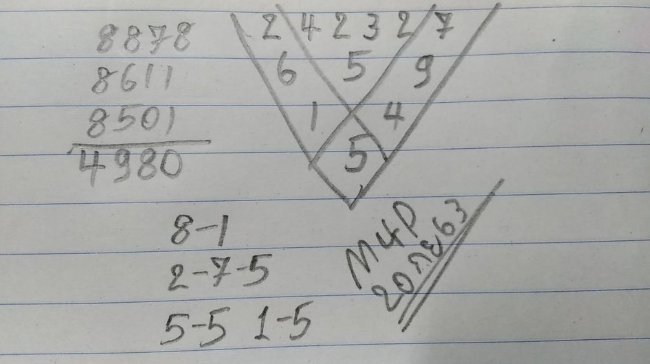 8878
8611
8501
4980
2 4 2 3 2 7
6 5 9
1 4
5
8-1
2-7-5
5-5 1-5
20 63